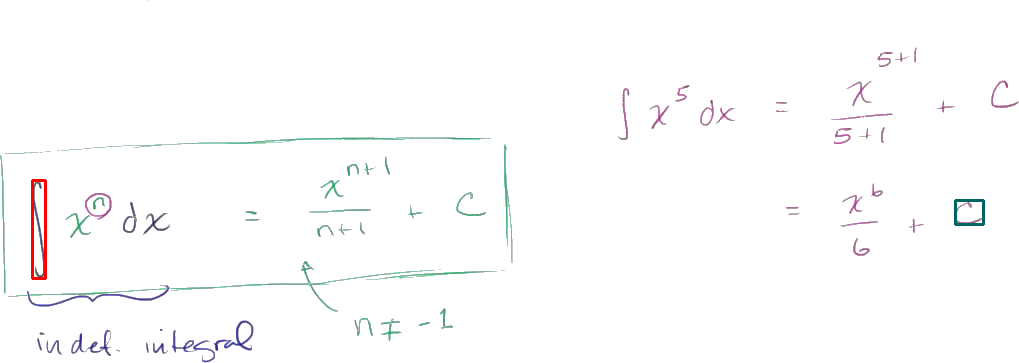 ∫ x^n dx = x^{n+1}/n+1 + C
indef. integral
n ≠ -1
∫ x^5 dx = x^{5+1}/5+1 + C
= x^6/6 + C